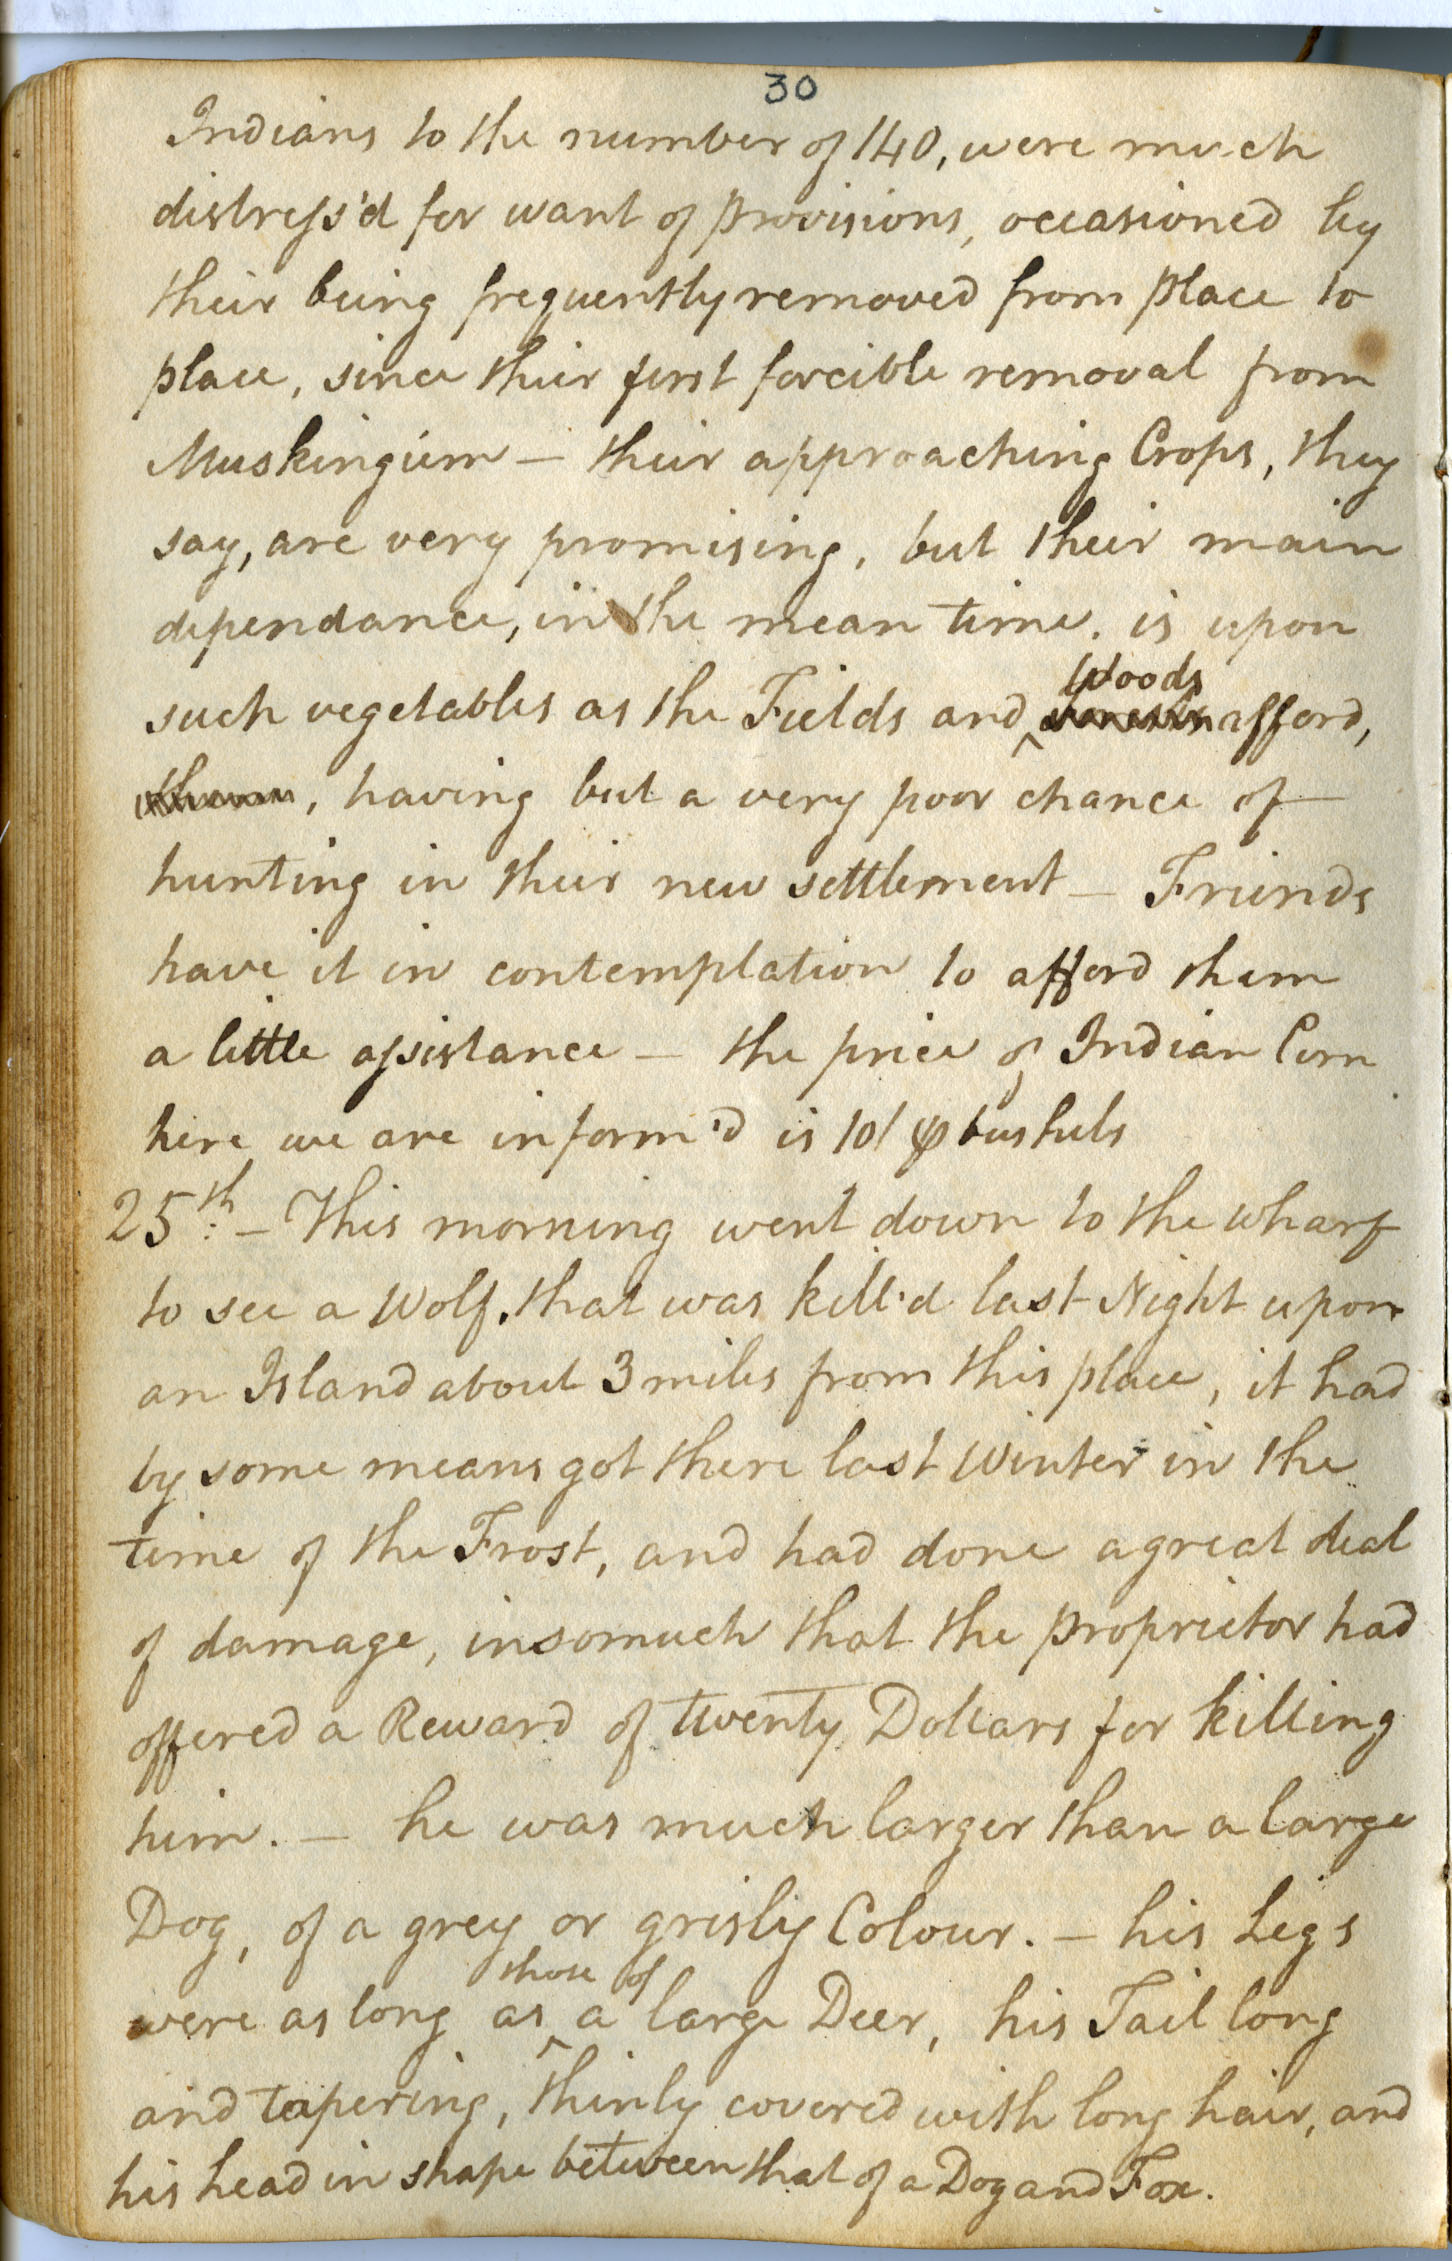 30
Indians to the number of 140, were much
distress'd for want of provisions, occasioned by
their being frequently removed from place to
place, since their first forcible removal from
Muskingum — their approaching Crops, they
say, are very promising, but their main
dependance, in the mean time. is upon
Woods
such vegetables as the Fields and ^ afford,
, having but a very poor chance of
hunting in their new settlement — Friends
have it in contemplation to afford them
a little assistance — the price of Indian Corn
here we are inform'd is 10/ ⅌ bushels
25th. — This morning went down to the wharf
to see a Wolf. that was kill'd last Night upon
an Island about 3 miles from this place, it had
by some means got there last Winter in the
time of the Frost, and had done a great deal
of damage, insomuch that the proprietor had
offered a Reward of twenty Dollars for killing
him. — he was much larger than a large
Dog, of a grey or grisly Colour. — his Legs
those of
were as long as ^ a large Deer, his Tail long
and tapering, thinly covered with long hair, and
his head in shape between that of a Dog and Fox.